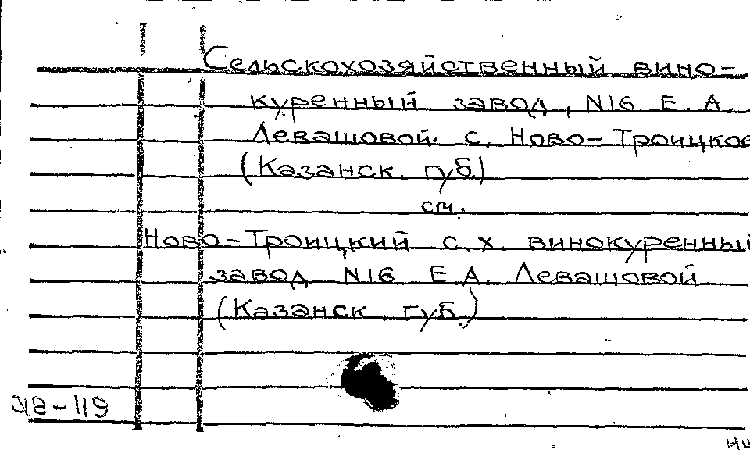 Сельскохозяйственный вино-
куренный завод, N16 Е. А.
Левашовой. с. Ново-Троицкое
(Казанск. губ.)
см.
Ново-Троицкий с. х. винокуренный
завод N16 Е.А. Левашовой
(Казанск. губ.)
-119